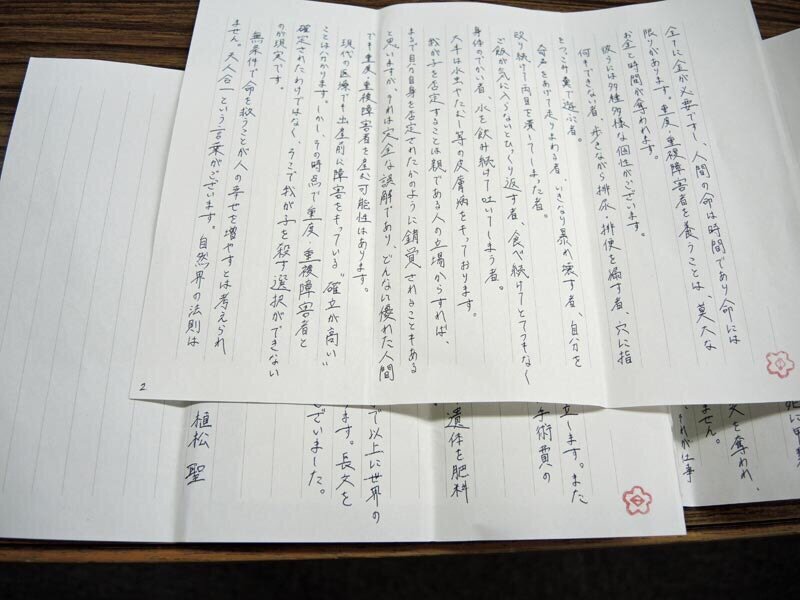 全てに金が必要ですし、人間の命は時間であり命には
限りがあります。重度・重複障害者を養うことは、莫大な
お金と時間が奪われます。
には多種多様な個性がございます。
何もできない者、歩きながら排尿・排便を漏す者、穴に指
をつっこみ糞で遊ぶ者。
奇声をあげて走りまわる者、いきなり暴れ壊す者、自分を
殴り続けて両目を潰してしまった者。
ご飯が気に入らないとひっくり返す者、食べ続けてとてつもなく
身体のでかい者、水を飲み続けて吐いてしまう者。
大半は水虫や等の皮膚病をもっております。
我が子を否定することは親である人の立場からすれば、
まるで自分自身を否定されたかのように錯覚されることもある
と思いますが、それは完全な誤解であり、どんない優れた人間
でも重度・重複障害者を産む可能性はあります。
現代の医療でも出産前に障害をもっている"確立が高い"
ことは分かります。しかし、その時点で重度・重複障害者と
確定されたわけではなく、そこで我が子を殺す選択ができない
のが現実です。
無条件で命を救うことが人の幸せを増やすとは考えられ
ません。天人合一という言葉がございます。自然界の法則は
2
それが仕事
ません。
を奪われ、
立します。また
手術費の
遺体を肥料
で以上に世界の
ます。長文を
ございました。
植松 聖